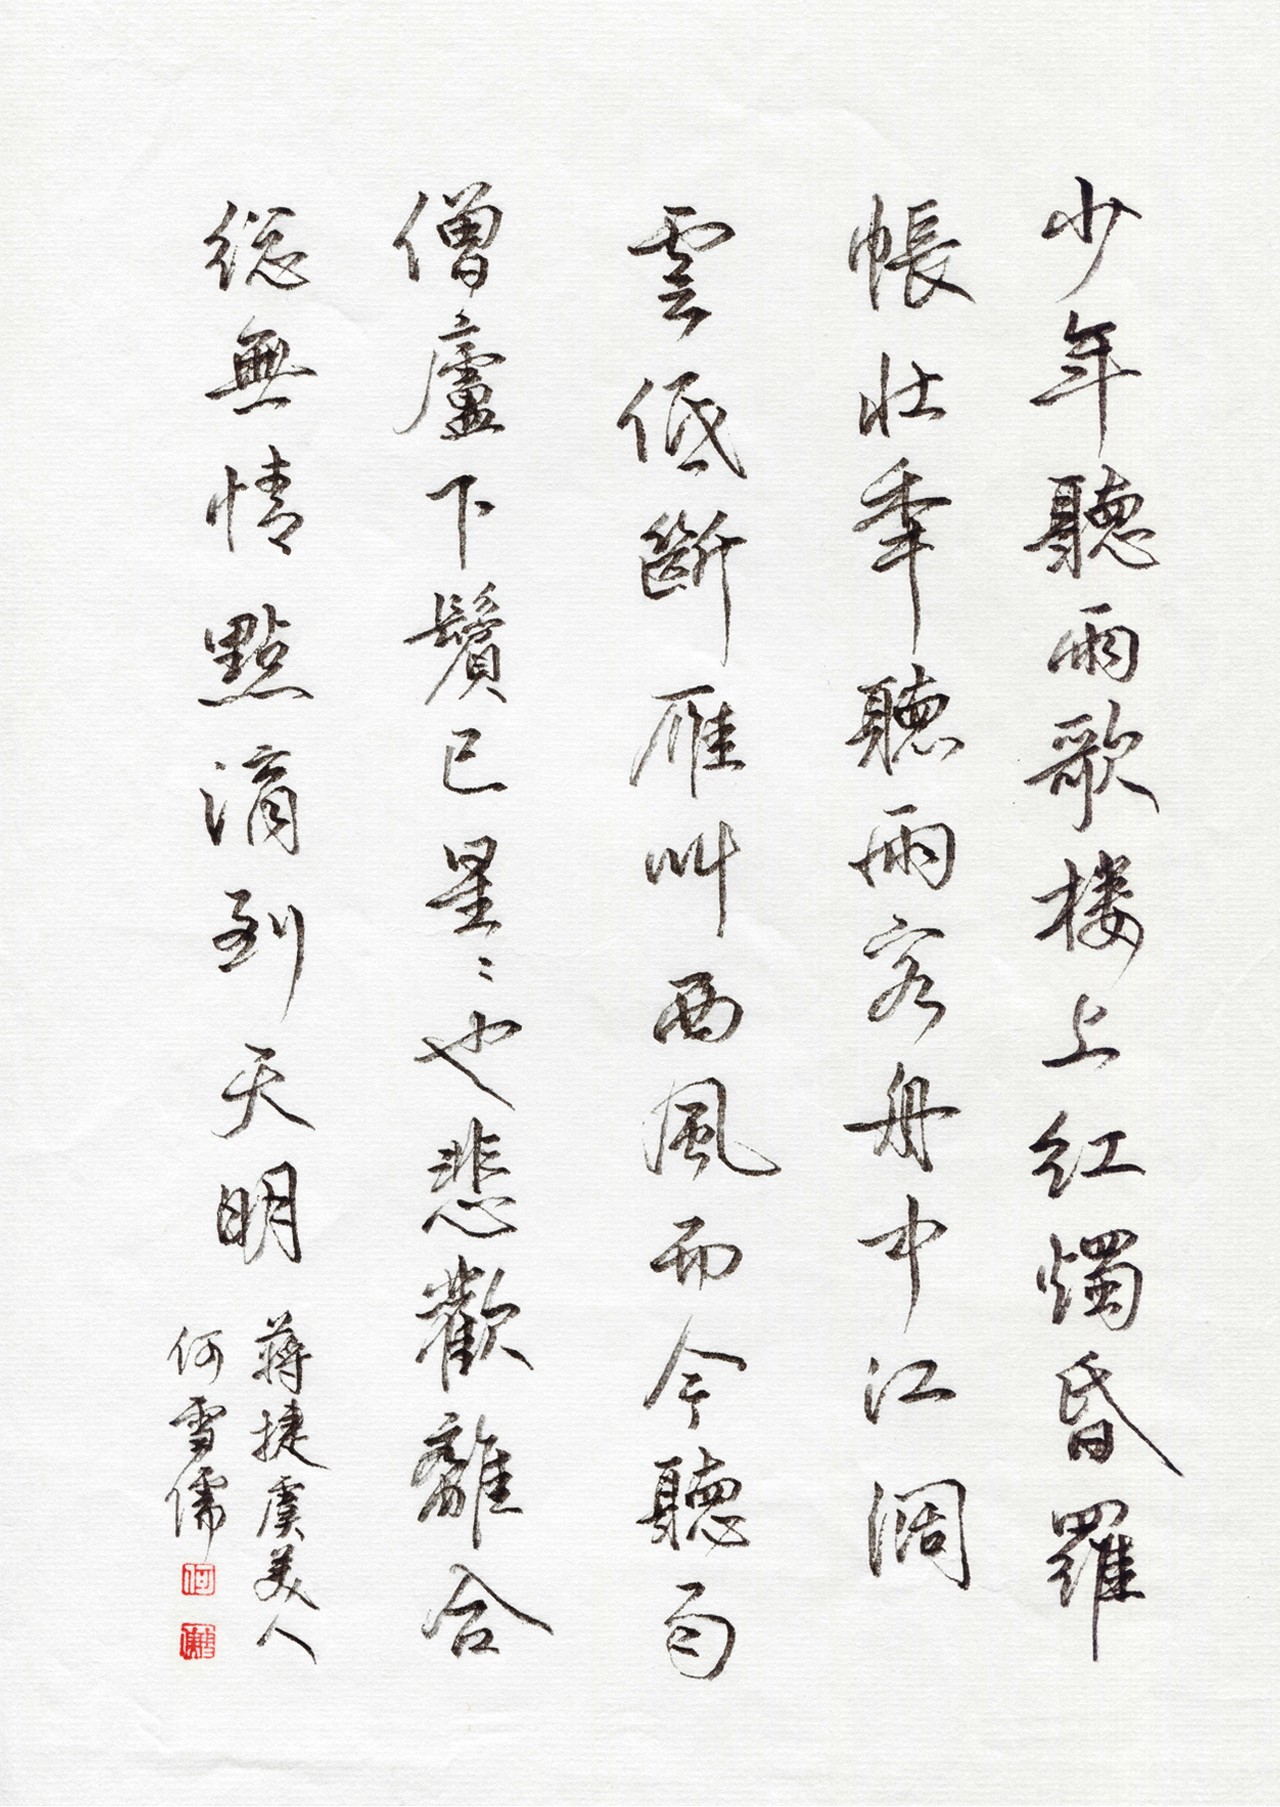 少年聽雨歌楼上红燭昏羅
帳壯年聽雨客舟中江闊
雲低斷雁叫西風而今聽雨
僧廬下鬢已星〻也悲歡離合
総無情點滴到天明
蔣捷虞美人
何雪儒
何